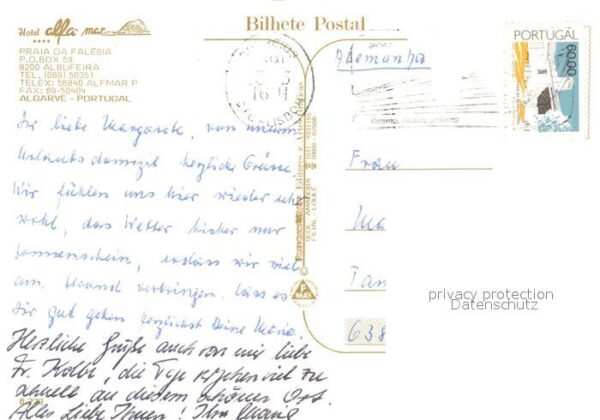 Hotel alfa mar
PRAIA DA FALÉSIA
P.O.BOX 59
8200 ALBUFEIRA
TEL. (089) 50351
TELEX: 56840 ALFMAR P
FAX: 89-50404
ALGARVE - PORTUGAL
Bilhete Postal
Alemanha
PORTUGAL
60.00
Dir liebe Margarete, von unserem
Urlaubsdomizil herzliche Grüsse.
Wir fühlen uns hier wieder sehr
wohl, das Wetter bisher nur
Sonnenschein, sodass wir viel
am Strand verbringen. Lass es
Dir gut gehen herzlichst Deine Maria.
Herzliche Grüße auch von mir liebe
Fr. Kolbe, die Tage vergehen viel zu
schnell an diesem schönen Ort.
Alles Liebe Ihnen! Ihre
Frau
Ma
Tan
638
privacy protection
Datenschutz